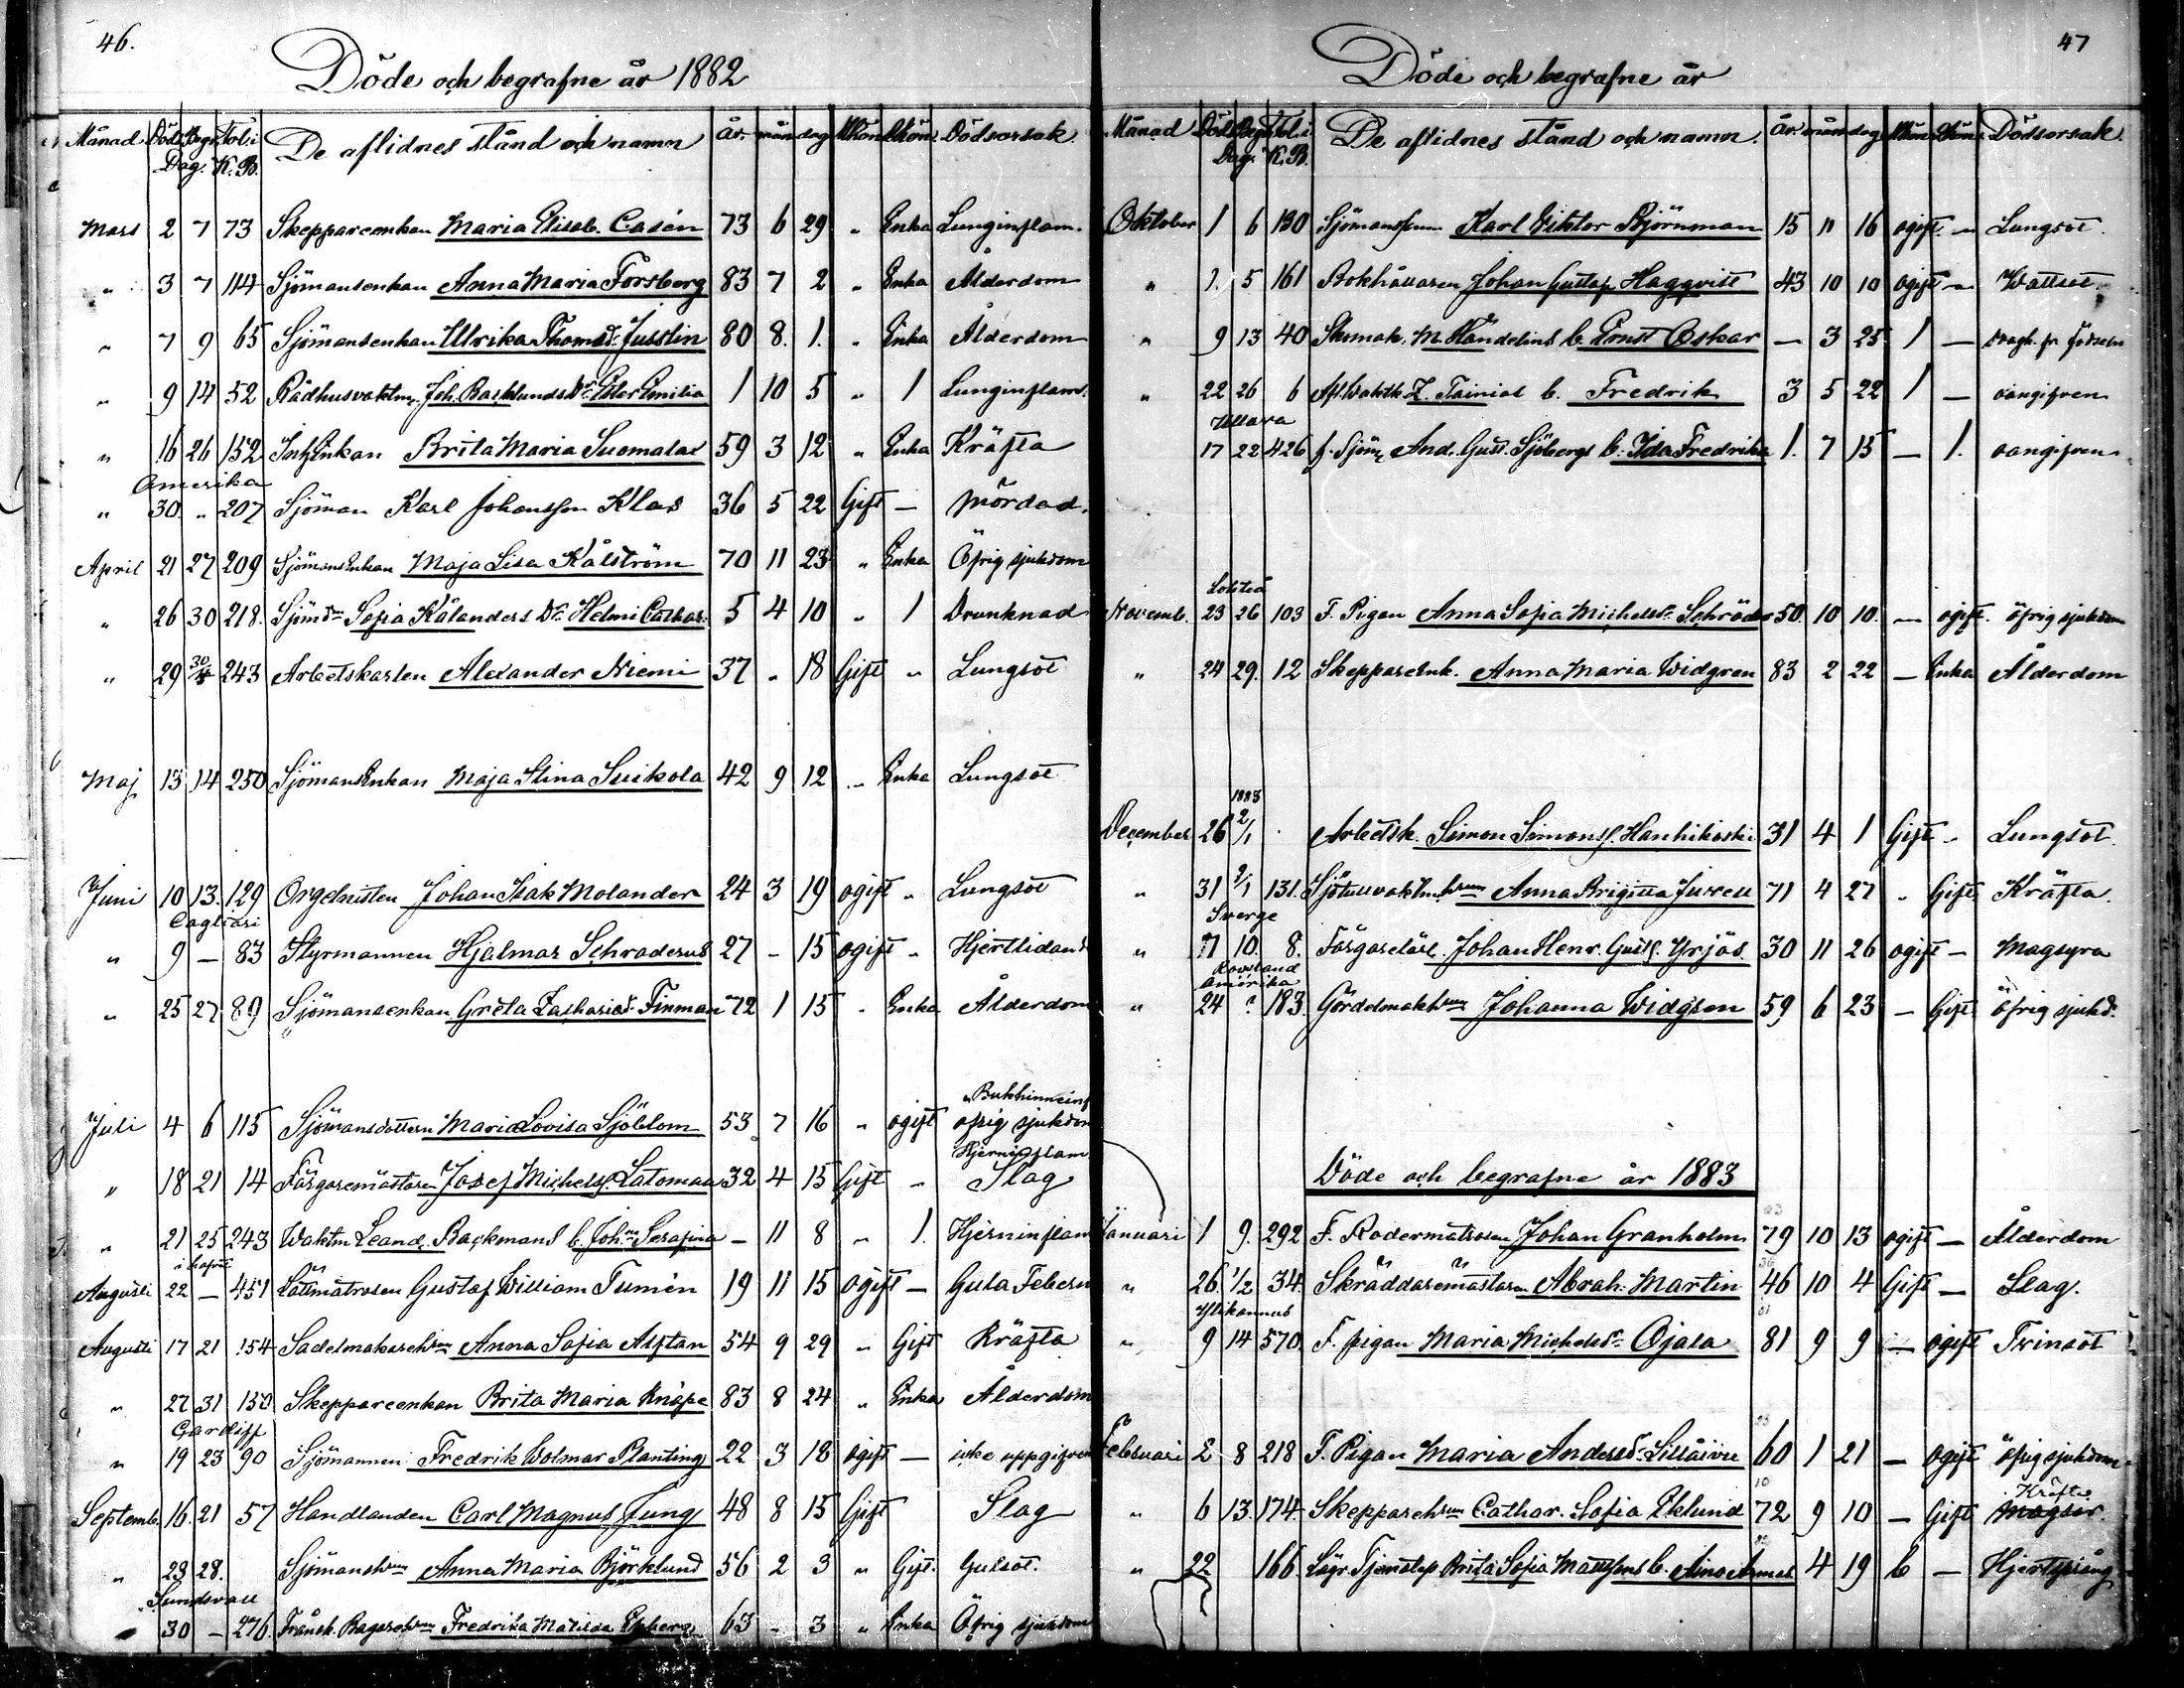 46.
Döde och begrafne år 1882
Månad Döds Begr. Fol. i De aflidnes stånd och namn år. mån dag Mkön Qkön. Dödsorsak.
Dag. K. B.
Mars 2 7 73 Skepparenkan Maria Elisab. Casén 73 6 29 " Enka Lunginflam.
" 3 7 114 Sjömansenkan Anna Maria Forsberg 83 7 2 " Enka Ålderdom
" 7 9 65 Sjömansenkan Ulrika Thomsd. Jusslin 80 8. 1. " Enka Ålderdom
" 9 14 52 Rådhusvaktm. Joh. Backlunds Dr. Ester Emilia 1 10 5 " 1 Lunginflam.
" 16 26 152 Inh. Enkan Brita Maria Suomalai 59 3 12 " Enka Kräfta
Amerika
" 30. " 207 Sjöman Karl Johansson Klas 36 5 22 Gift — Mördad.
April 21 27 209 Sjömans Enkan Maja Lisa Kålström 70 11 23 " Enka Öfrig sjukdom
" 26 30 218. Sjömdn Sofia Kålanders Dr. Helmi Cathar. 5 4 10 " 1 Drunknad
" 29 30/4 243 Arbetskarlen Alexander Niemi 37 " 18 Gift " Lungsot
Maj 13 14 250 Sjömans Enkan Maja Stina Suikola 42 9 12 " Enka Lungsot
Juni 10 13. 129 Orgelnisten Johan Isak Molander 24 3 19 ogift " Lungsot
Cagliari
" 9 — 83 Styrmannen Hjalmar Schroderus 27 - 15 ogift " Hjertlidand
" 25 27 89 Sjömansenkan Greta Zachariasd. Finman 72 1 15 " Enka Ålderdom
Bukhinneinf
Juli 4 6 115 Sjömansdottern Maria Lovisa Sjöblom 53 7 16 " ogift ofrig sjukdom
Hjerninflam
" 18 21 14 Färgaremästaren Josef Michelss. Latomaa 32 4 15 Gift " Slag
" 21 25 243 Waktm Leand. Backmans b. Joh:na Serafina — 11 8 " 1. Hjerninflam
i hafvet
Augusti 22 — 451 Lättmatrosen Gustaf William Tumén 19 11 15 ogift — Gula Febern
Augusti 17 21 154 Sadelmakarehrun Anna Sofia Alftan 54 9 29 " Gift Kräfta
" 27 31 130 Skepparenkan Brita Maria Knape 83 8 24 " Enka Ålderdom
Cardiff
" 19 23 90 Sjömannen Fredrik Wolmar Planting 22 3 18 ogift — icke uppgifven
Septemb. 16. 21 57 Handlanden Carl Magnus Jung 48 8 15 Gift Slag
" 23 28. Sjömanshrun Anna Maria Björklund 56 2 3 " Gift. Gulsot.
Sundsvall
30 — 276. Fredrika Matilda 63 - 3 " Enka Öfrig sjukdom
47
Döde och begrafne år
Månad Döds Begr. Fol. i De aflidnes stånd och namn. år. mån dag Mkön Qkön. Dödsorsak.
Dag. K. B.
Oktober 1 6 130 Sjömansson Karl Viktor Björnman 15 11 16 ogift — Lungsot.
" 1. 5 161 Bokhållaren Johan Gustaf Hagqvist 43 10 10 ogift — Wattsot.
" 9 13 40 Skomak. M. Handelins b. Ernst Oskar — 3 25 1 — svagh. fr födseln
" 22 26 6 Af. Waktk Z. Tainiol b. Fredrik 3 5 22 1 — oangifven
Ullava
17 22 426 f. Sjöm. And. Gust. Sjöbergs b. Ida Fredrika 1. 7 15 — 1. oangifven
Lohteå
Novemb. 23 26 103 F. Pigan Anna Sofia Michelsd. Schröder 50. 10 10. — ogift. öfrig sjukdom
" 24 29. 12 Skepparenk. Anna Maria Widgren 83 2 22 — Enka Ålderdom
1883
December 26 2/1 Arbetsk. Simon Simonss. Hanhikoski 31 4 1 Gift " Lungsot.
" 31 2/1 131. Sjötullvaktm.hrun Anna Brigitta Juvell 71 4 27 " Gift Kräfta.
Sverge
" 7 10. 8. Färgarelärl. Johan Henr. Gust. Yrjäs 30 11 26 ogift — Magsyra
Rowland
Amerika
" 24 ? 183. Gördelmakhrun Johanna Widgren 59 6 23 — Gift öfrig sjukd.
Döde och begrafne år 1883
Januari 1 9. 292 F. Rodermatrosen Johan Granholm 79 10 13 ogift — Ålderdom
" 26. 1/2 34. Skräddaremästaren Abrah. Martin 46 10 4 Gift — Slag.
Ylikannus
" 9 14 570. F. pigan Maria Michelsd. Ojala 81 9 9 — ogift Trinsot
Februari 2 8 218 F. Pigan Maria Andersd. 60 1 21 — ogift öfrig sjukdom
Kräfta
" 6 13. 174. Skepparehrun Cathar. Sofia Eklund 72 9 10 — Gift Magsår.
" 22 166. Lägr. Tjenstep Brita Sofia Mattssons b. Aina 4 19 b — Hjertsprång